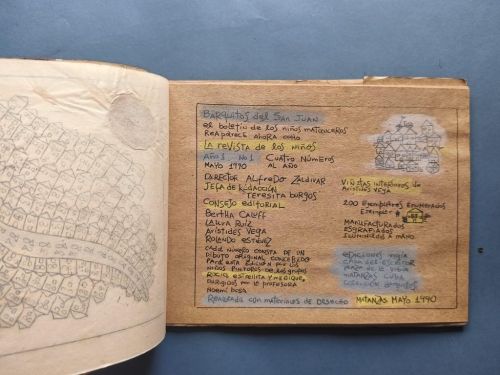 Barquitos del San Juan
el boletín de los niños matanceros
Reaparece ahora como
La revista de los niños
Año 1 No 1 Cuatro números
Mayo 1990 al año
Director Alfredo Zaldívar
Jefa de redacción
Teresita Burgos
Consejo editorial
Bertha Caluff
Laura Ruiz
Arístides Vega
Rolando Estévez
Cada número consta de un
dibujo original concebido
para esta edición por los
niños pintores de los grupos
Rocío, Estrellita y Meñique,
dirigidos por la profesora
Noemí
Realizada con materiales de desecho
Viñetas interiores de
Arístides Vega
200 ejemplares enumerados
Ejemplar
Manufacturados
Iluminados a mano
Ediciones Vigía
Casa del Escritor
Plaza de la Vigía
Matanzas Cuba
Colección
Matanzas Mayo 1990